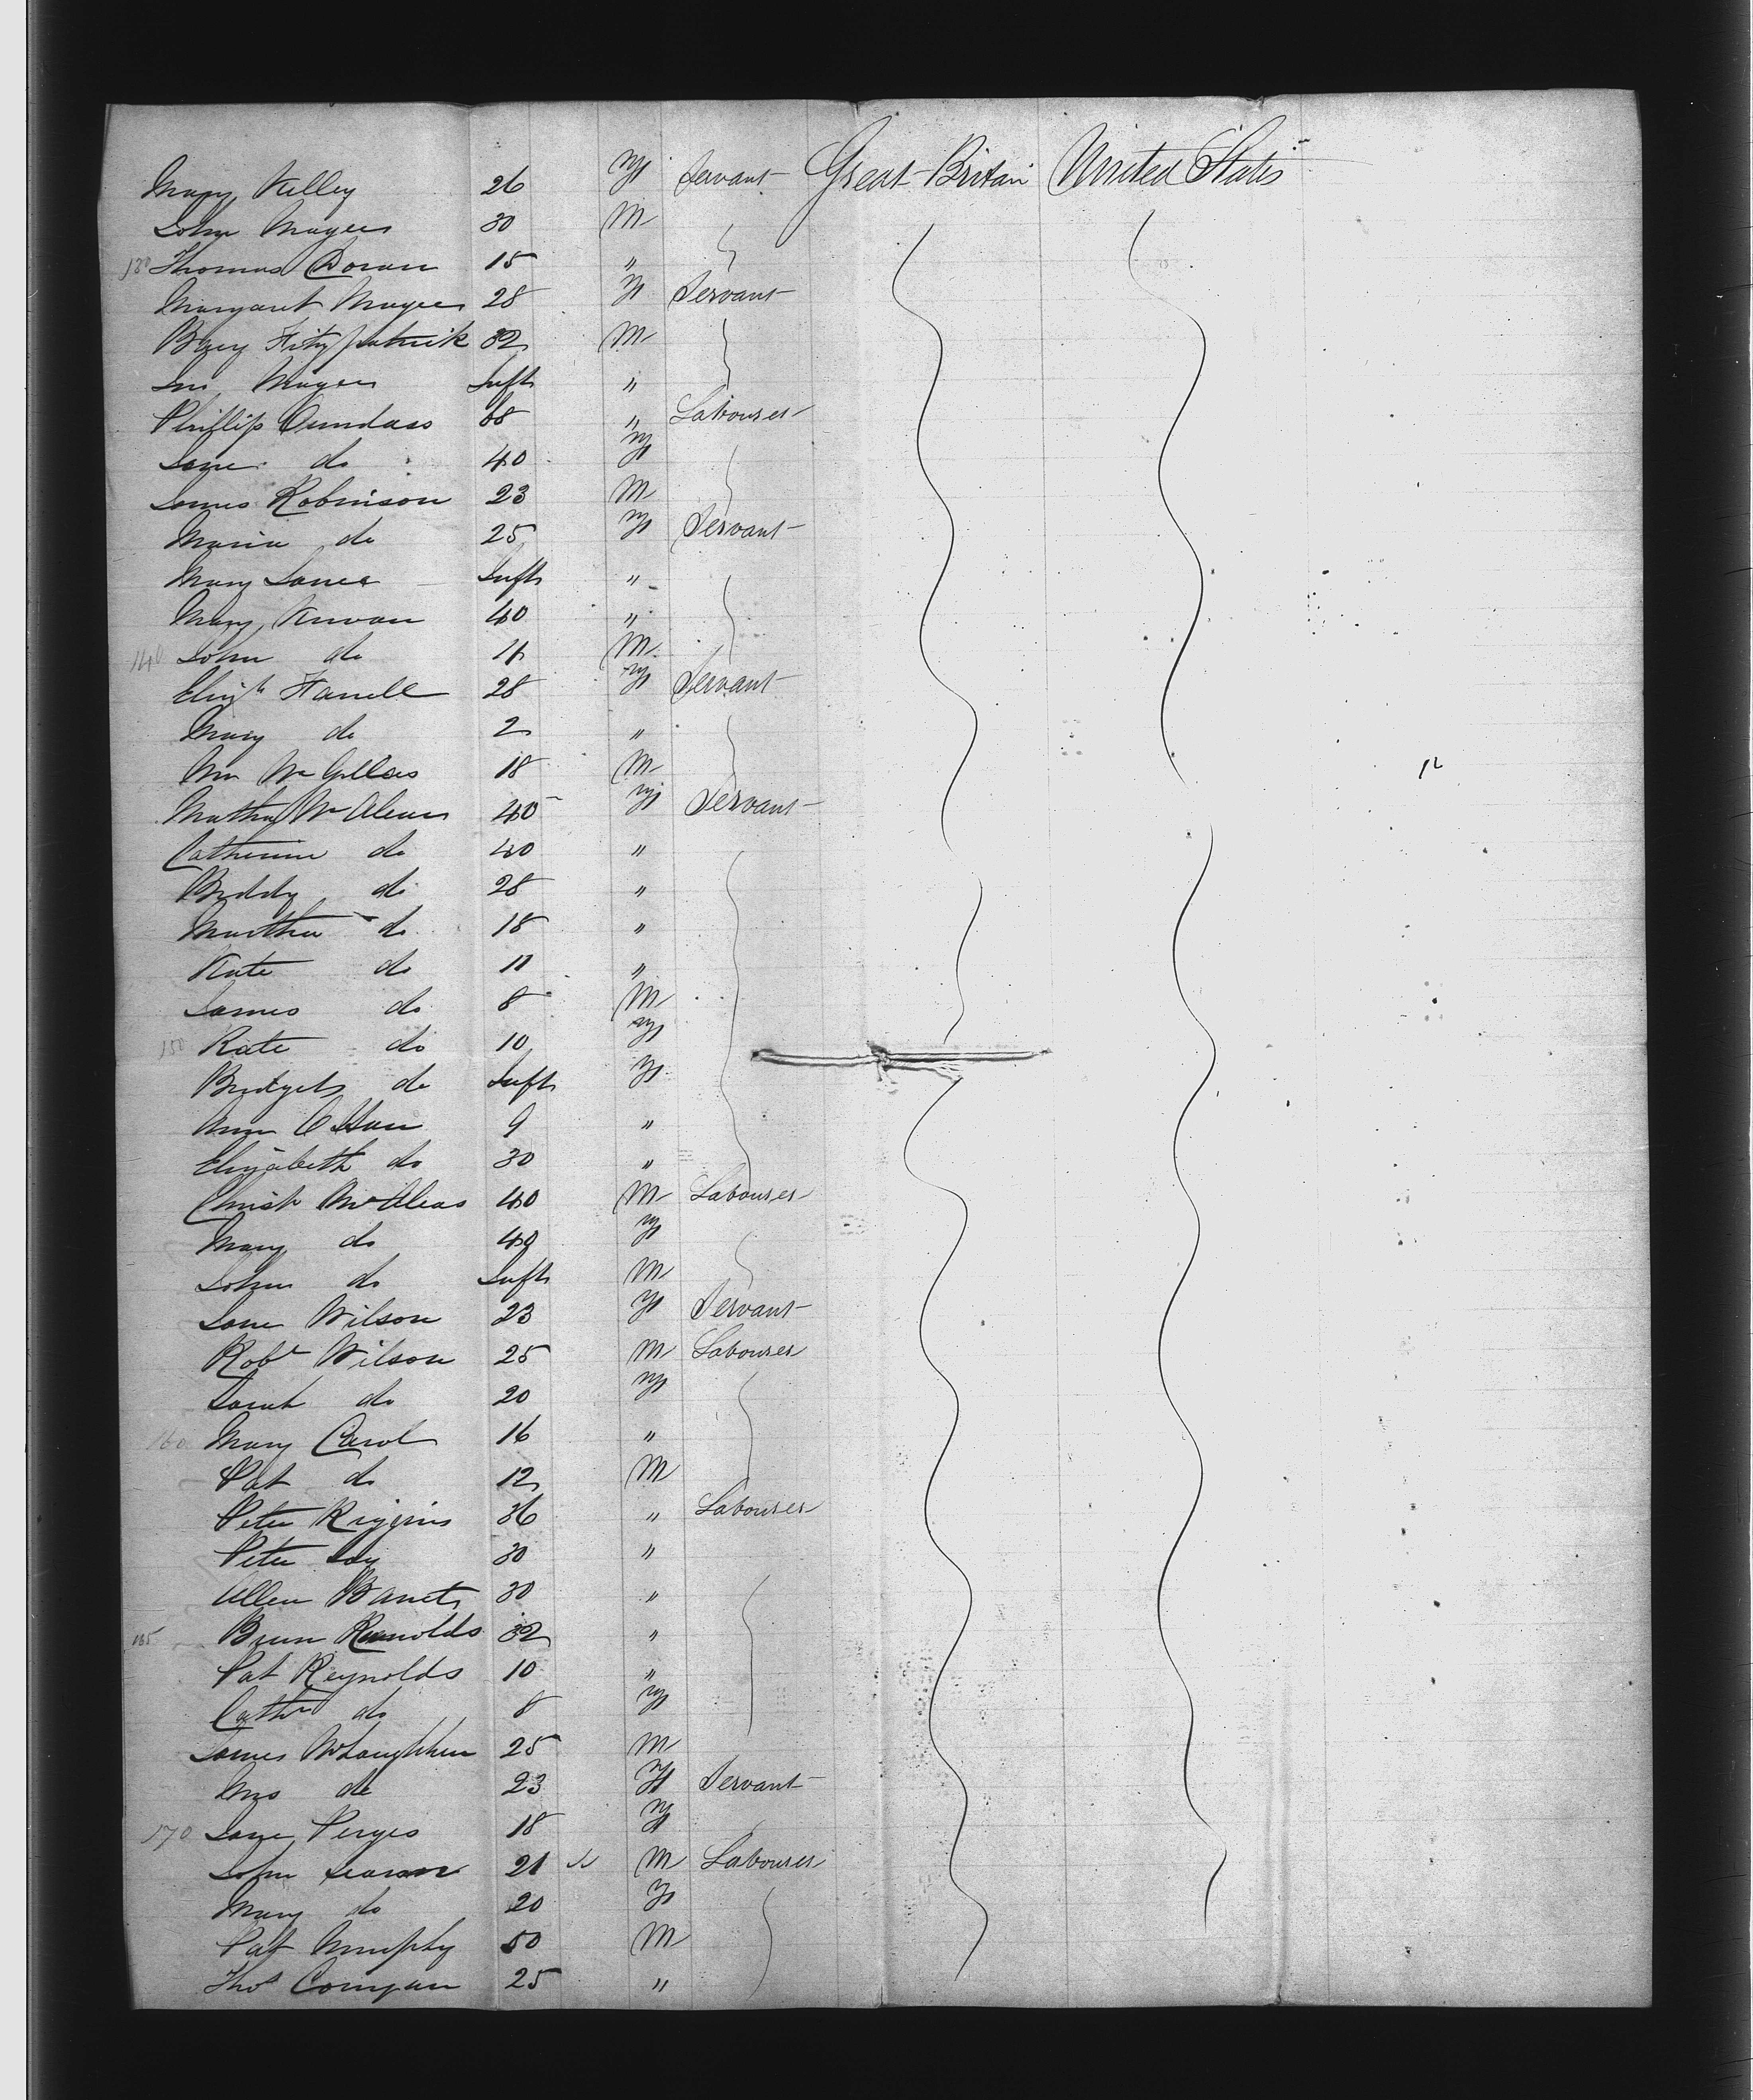 Mary Kelley 26 Servant Great Britain United States
John Magees 30 M
130 Thomas Doran 15 "
Margaret Magees 28 Servant
Fitzpatrick 32 M
Magees Inft "
Phillip Dundass 68 " Labourer
Jane do 40
James Robinson 23 M
Maria do 25 Servant
Mary Jane Inft "
Mary Kirwan 40 "
140 John do 11 M
Elizth Farrell 28 Servant
Mary do 2 "
18 M
Servant
Catherine do 40 "
Biddy do 28 "
Martha do 18 "
Kate do 11 "
James do 8 M
150 Kate do 10
Bridget do Inft
Ann O Hara 9 "
Elizabeth do 30 "
Christr McAleas 40 M Labourer
Mary do 49
John do Inft M
Jane Wilson 23 Servant
Robt Wilson 25 M Labourer
Sarah do 20
160 Mary Carol 16 "
Pat do 12 M
Peter Riggins 36 " Labourer
Peter 30 "
30 "
165 Reynolds 32 "
Pat Reynolds 10 "
Cathn do 8
James McLaughlin 25 M
Mrs do 23 Servant
170 Jane 18
John 21 M Labourer
Mary do 20
Pat Murphy 50 M
Thos Corrigan 25 "